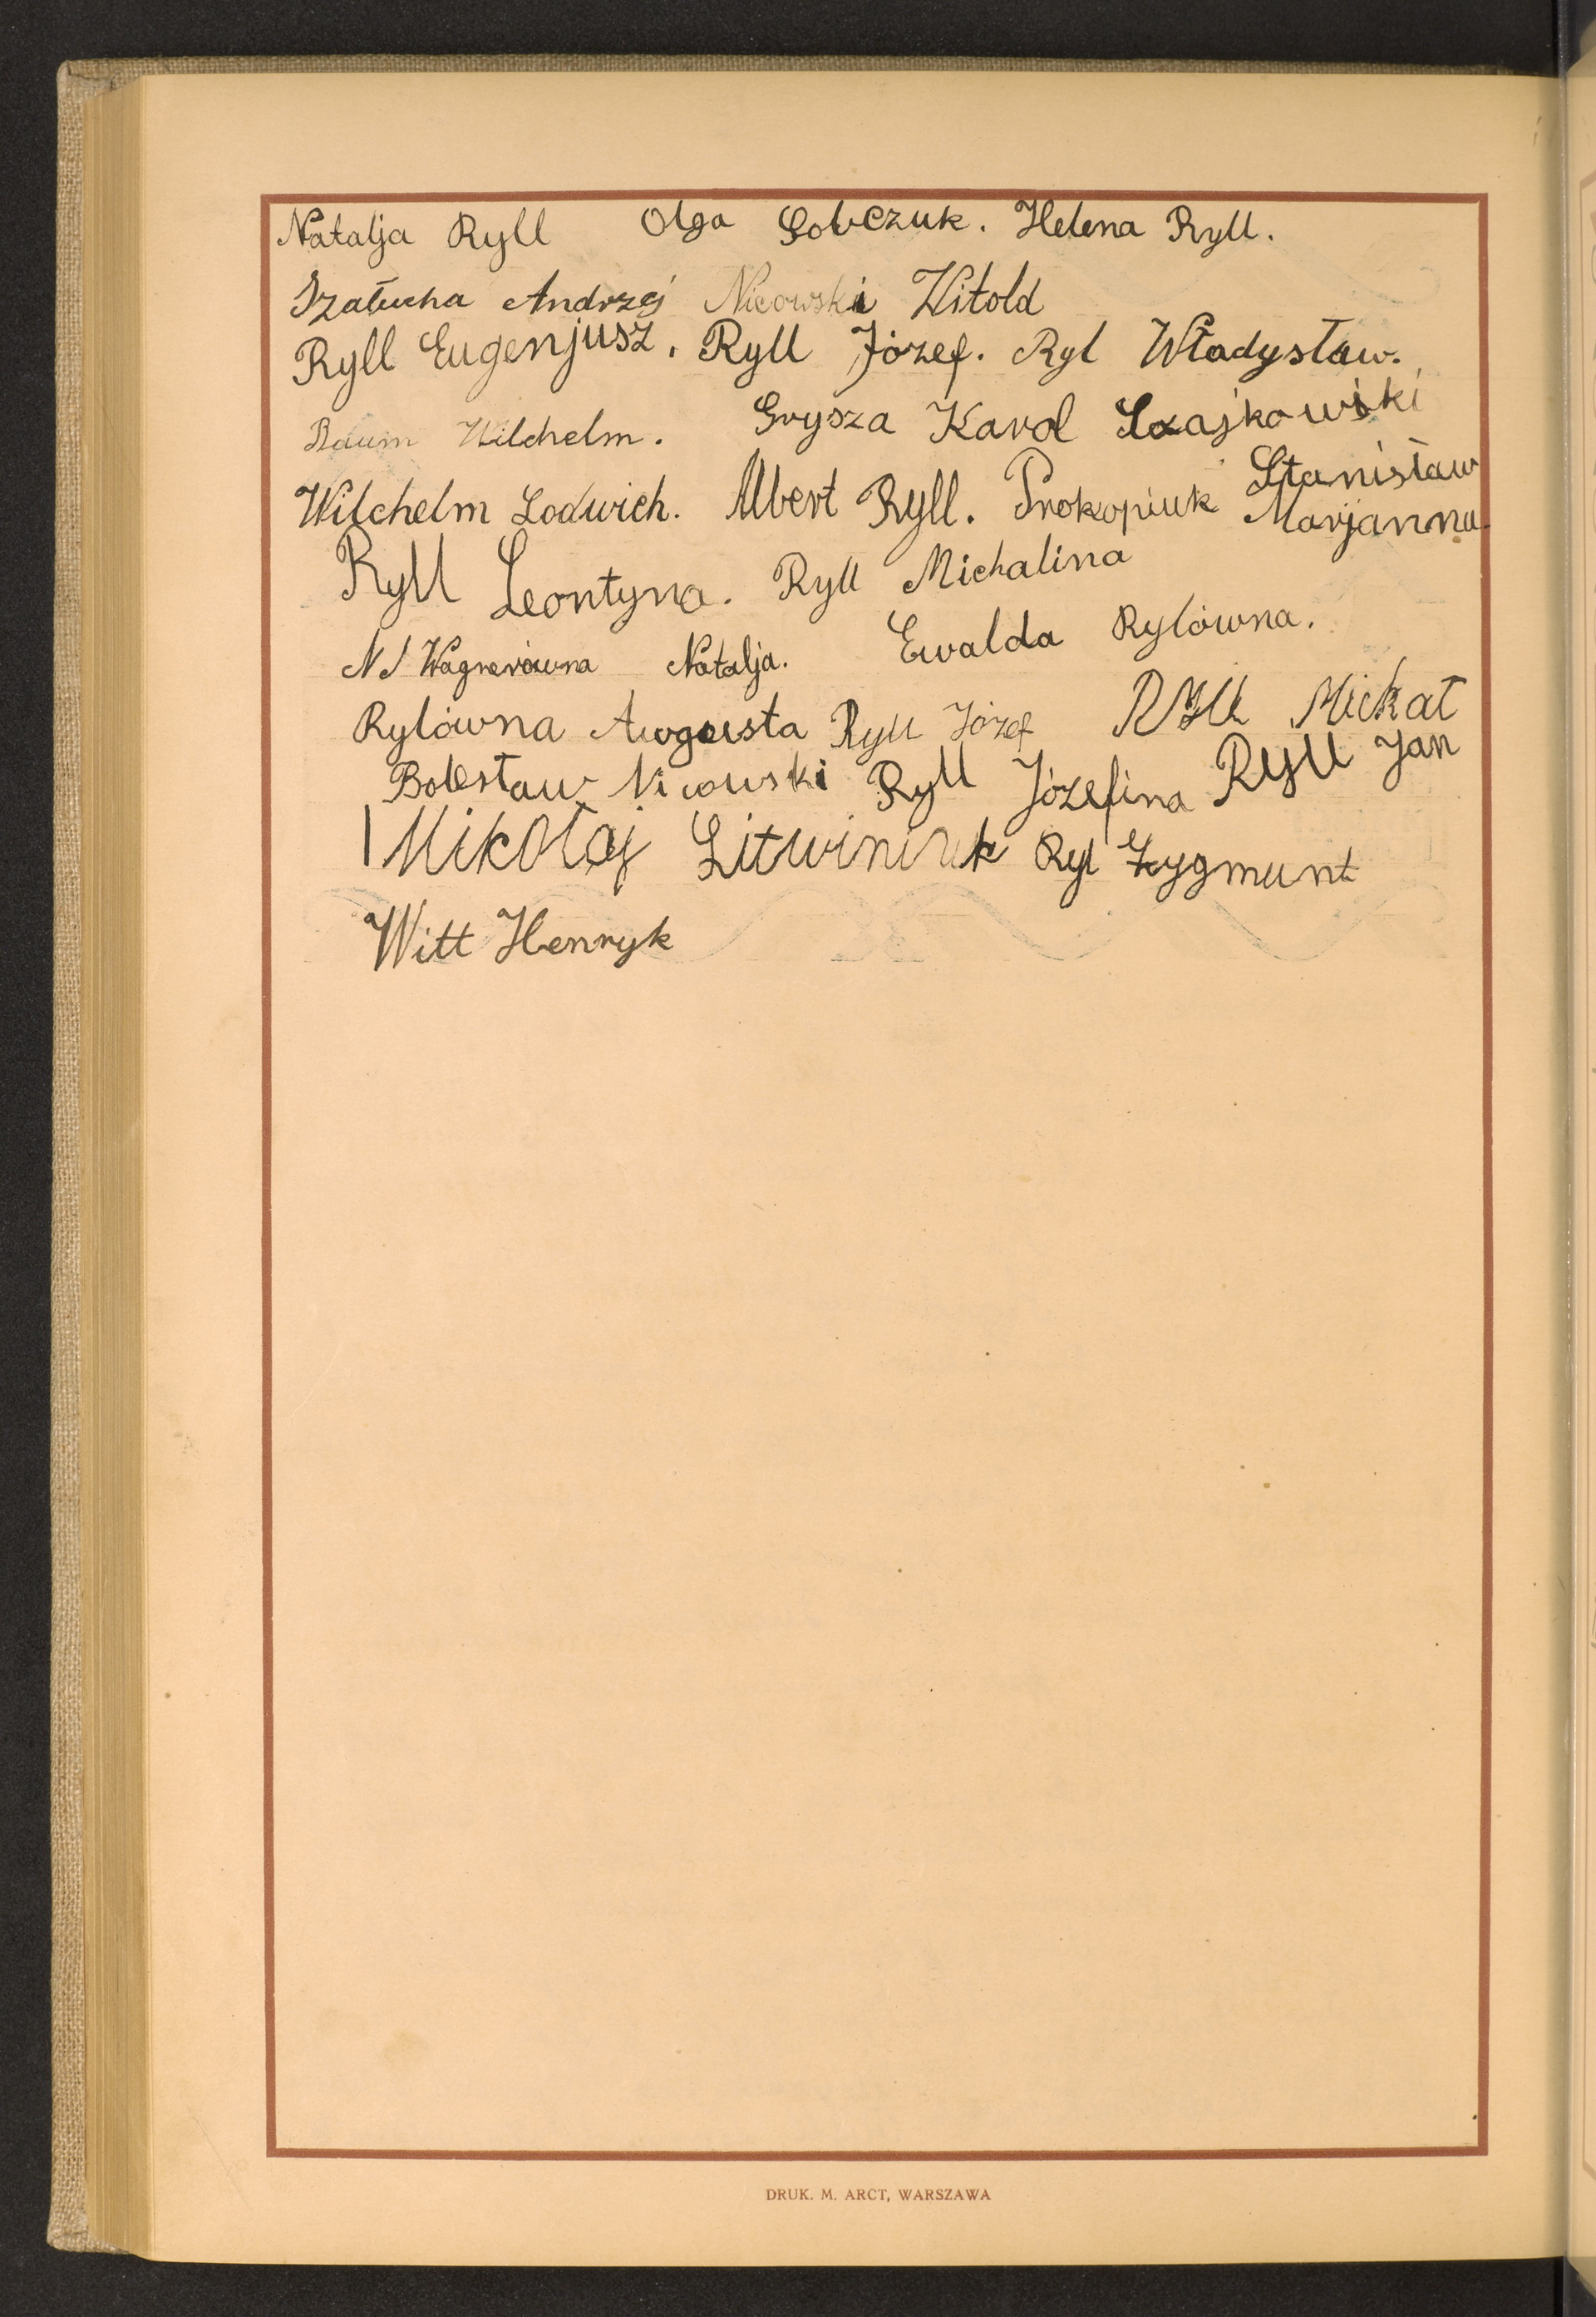 Natalja Ryll Olga Sobczuk. Helena Ryll.
Szałucha Andrzej Nicowski Witold
Ryll Eugenjusz. Ryll Józef. Ryl Władysław.
Baum Wilchelm. Grysza Karol Szajkowski
Stanisław
Wilchelm Lodwich. Albert Ryll. Prokopiuk Marjanna.
Ryll Leontyna. Ryll Michalina
Wagnerówna Natalja. Ewalda Rylówna.
Rylówna Augusta Ryll Józef Ryll Michał
Bolesław Nicowski Ryll Józefina Ryll Jan
Mikołaj Litwiniuk Ryl Zygmunt
Witt Henryk
DRUK. M. ARCT, WARSZAWA